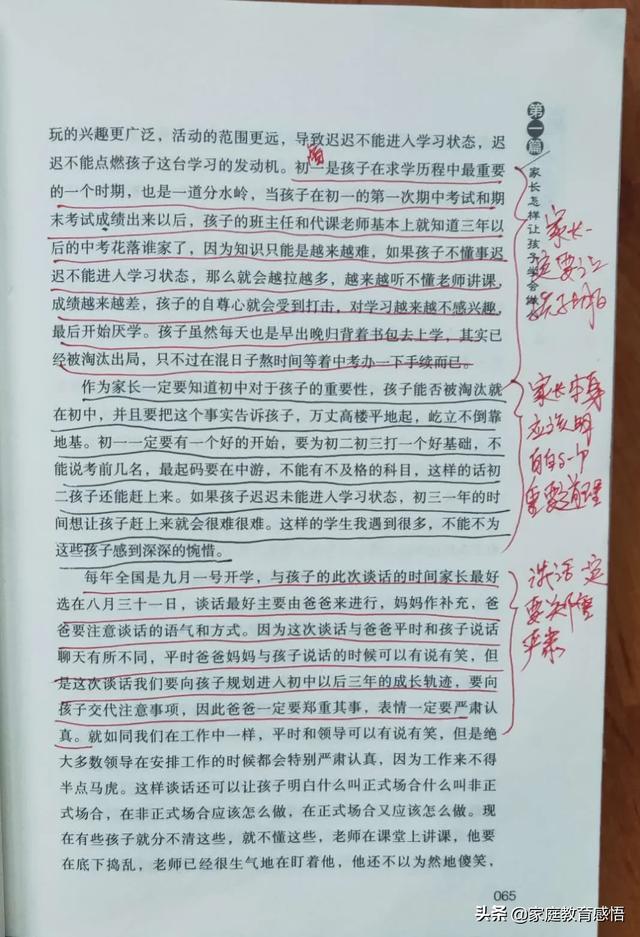 第一篇
家长怎样让孩子学会
玩的兴趣更广泛，活动的范围更远，导致迟迟不能进入学习状态，迟
迟不能点燃孩子这台学习的发动机。初一是孩子在求学历程中最重要
的一个时期，也是一道分水岭，当孩子在初一的第一次期中考试和期
末考试成绩出来以后，孩子的班主任和代课老师基本上就知道三年以
后的中考花落谁家了，因为知识只能是越来越难，如果孩子不懂事迟
迟不能进入学习状态，那么就会越拉越多，越来越听不懂老师讲课，
成绩越来越差，孩子的自尊心就会受到打击，对学习越来越不感兴趣，
最后开始厌学。孩子虽然每天也是早出晚归背着书包去上学，其实已
经被淘汰出局，只不过在混日子熬时间等着中考办一下手续而已。
作为家长一定要知道初中对于孩子的重要性，孩子能否被淘汰就
在初中，并且要把这个事实告诉孩子，万丈高楼平地起，屹立不倒靠
地基。初一一定要有一个好的开始，要为初二初三打一个好基础，不
能说考前几名，最起码要在中游，不能有不及格的科目，这样的话初
二孩子还能赶上来。如果孩子迟迟未能进入学习状态，初三一年的时
间想让孩子赶上来就会很难很难。这样的学生我遇到很多，不能不为
这些孩子感到深深的惋惜。
每年全国是九月一号开学，与孩子的此次谈话的时间家长最好
选在八月三十一日，谈话最好主要由爸爸来进行，妈妈作补充，爸
爸要注意谈话的语气和方式。因为这次谈话与爸爸平时和孩子说话
聊天有所不同，平时爸爸妈妈与孩子说话的时候可以有说有笑，但
是这次谈话我们要向孩子规划进入初中以后三年的成长轨迹，要向
孩子交代注意事项，因此爸爸一定要郑重其事，表情一定要严肃认
真。就如同我们在工作中一样，平时和领导可以有说有笑，但是绝
大多数领导在安排工作的时候都会特别严肃认真，因为工作来不得
半点马虎。这样谈话还可以让孩子明白什么叫正式场合什么叫非正
式场合，在非正式场合应该怎么做，在正式场合又应该怎么做。现
在有些孩子就分不清这些，就不懂这些，老师在课堂上讲课，他要
在底下捣乱，老师已经很生气地在盯着他，他还不以为然地傻笑，
家长一
定要让
孩子明白
家长本身
应该明
白的一个
重要道理
谈话一定
要郑重
严肃
065
头条@家庭教育感悟